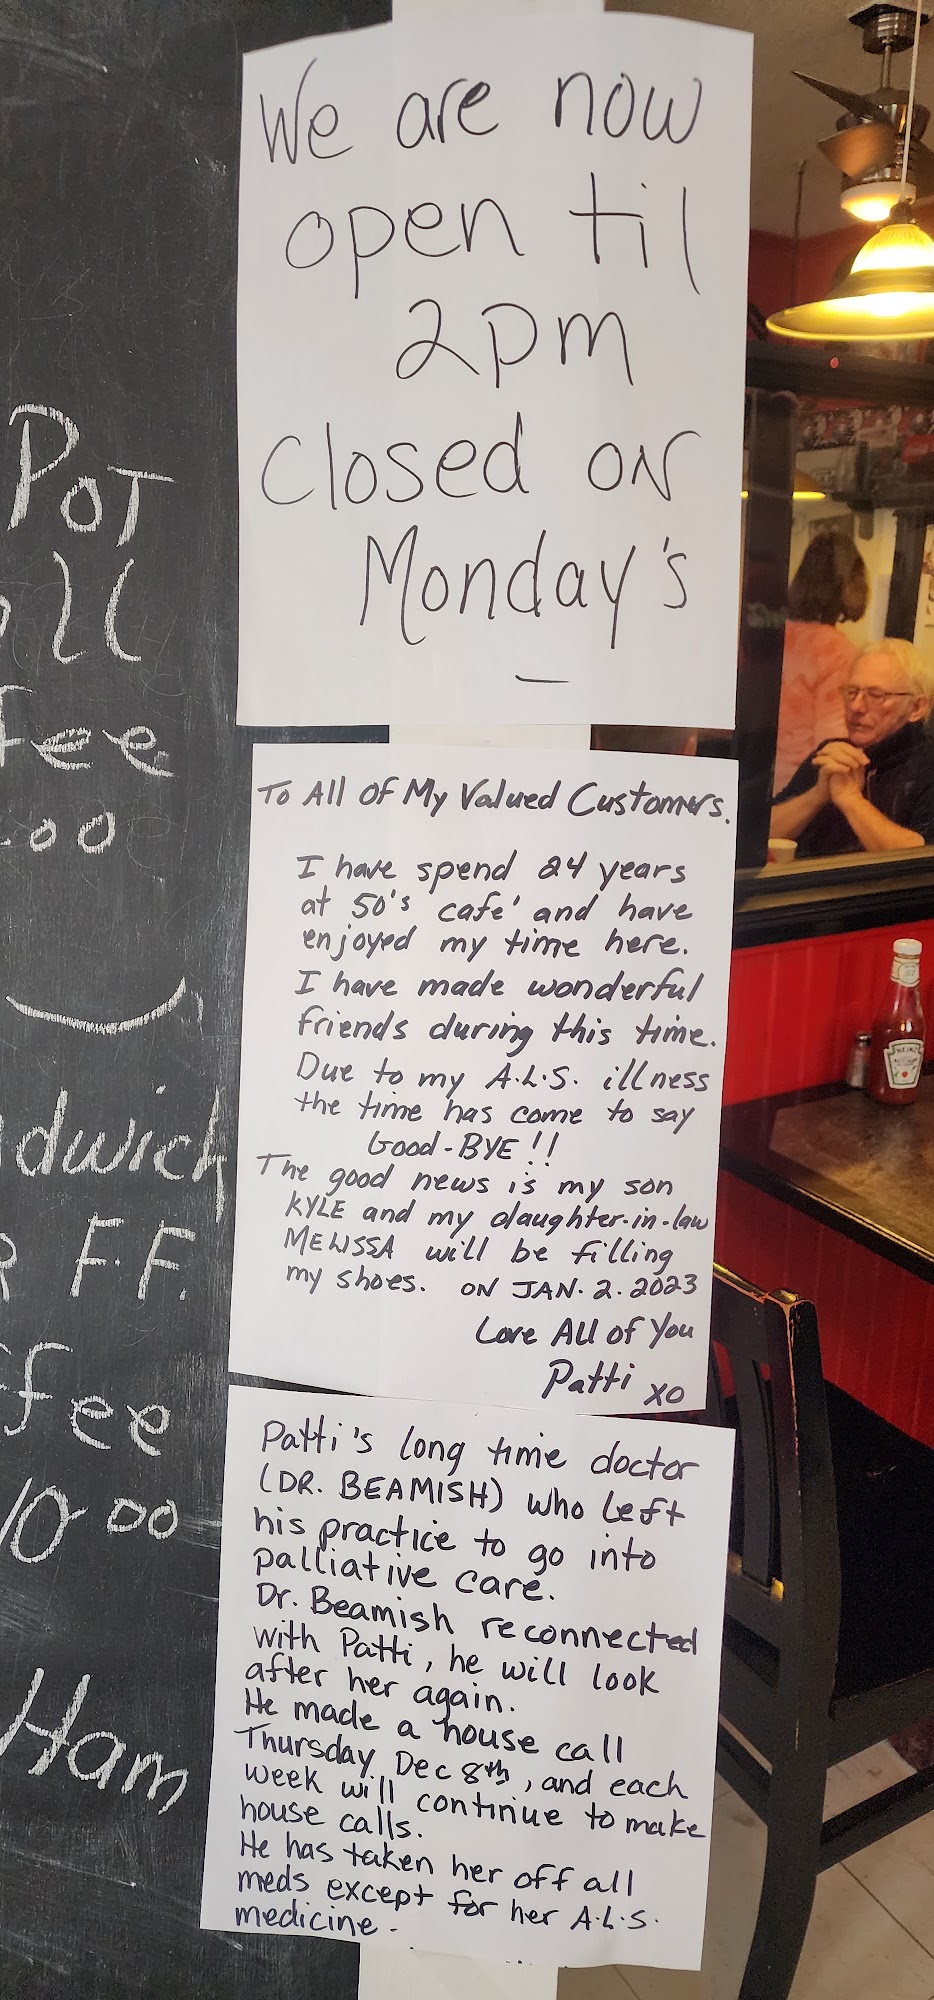 We are now
open til
2pm
Closed on
Monday's
To All of My Valued Customers.
I have spend 24 years
at 50's 'cafe' and have
enjoyed my time here.
I have made wonderful
friends during this time.
Due to my A.L.S. illness
the time has come to say
Good-BYE !!
The good news is my son
KYLE and my daughter-in-law
MELISSA will be filling
my shoes. ON JAN. 2. 2023
Love All of You
Patti xo
Patti's long time doctor
(DR. BEAMISH) who left
his practice to go into
palliative care.
Dr. Beamish reconnected
with Patti, he will look
after her again.
He made a house call
Thursday Dec 8th, and each
week will continue to make
house calls.
He has taken her off all
meds except for her A.L.S.
medicine.
POT
ll
fee
00
dwich
R F.F.
ffee
10 00
Ham
HEINZ